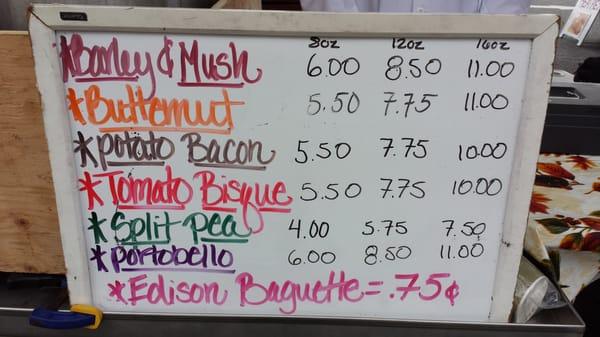 8oz 12oz 16oz
*Barley & Mush 6.00 8.50 11.00
*Butternut 5.50 7.75 11.00
*potato Bacon 5.50 7.75 10.00
*Tomato Bisque 5.50 7.75 10.00
*Split Pea 4.00 5.75 7.50
*portobello 6.00 8.50 11.00
*Edison Baguette = .75¢